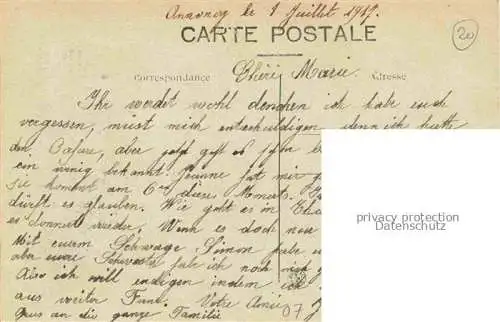 Annonay le 1 Juillet 1917.
CARTE POSTALE
20
Correspondance
Adresse
Chère Marie.
Ihr werdet wohl denchen ich habe euch
vergessen, müst mich entschuldigen denn ich hatte
den Cafare, aber jetzt geht es
ein winig bekannt. Jeanne hat mir
Sie kommt am 6en dieses Monats.
dürft es glauben. Wie geht es in
es donnert wieder, Wenn es doch
Mit euerm Schwager Simon habe
aber eure Schwester hab ich noch
Also ich will endigen indem ich
aus weiter Votre Amie
Grus an die ganze Familie
07
privacy protection
Datenschutz